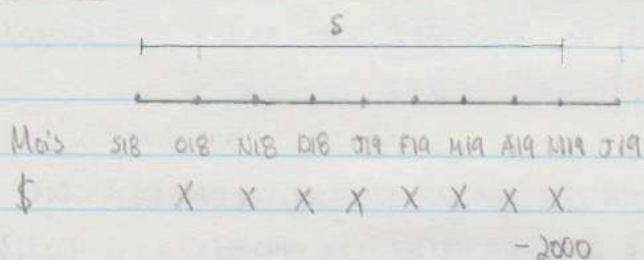 S
Mois S18 O18 N18 D18 J19 F19 M19 A19 M19 J19
$ X X X X X X X X
-2000